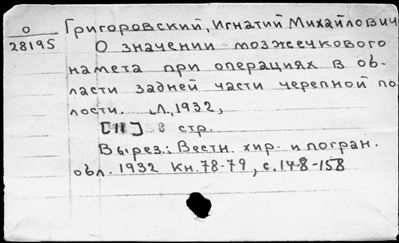 О
28195
Григоровский, Игнатий Михайлович
О значении мозжечкового
намета при операциях в об-
ласти задней части черепной по
лости. Л, 1932,
[11] 8 стр.
Вырез.: Вестн. хир. и погран.
обл. 1932 Кн. 78-79, с. 148-158